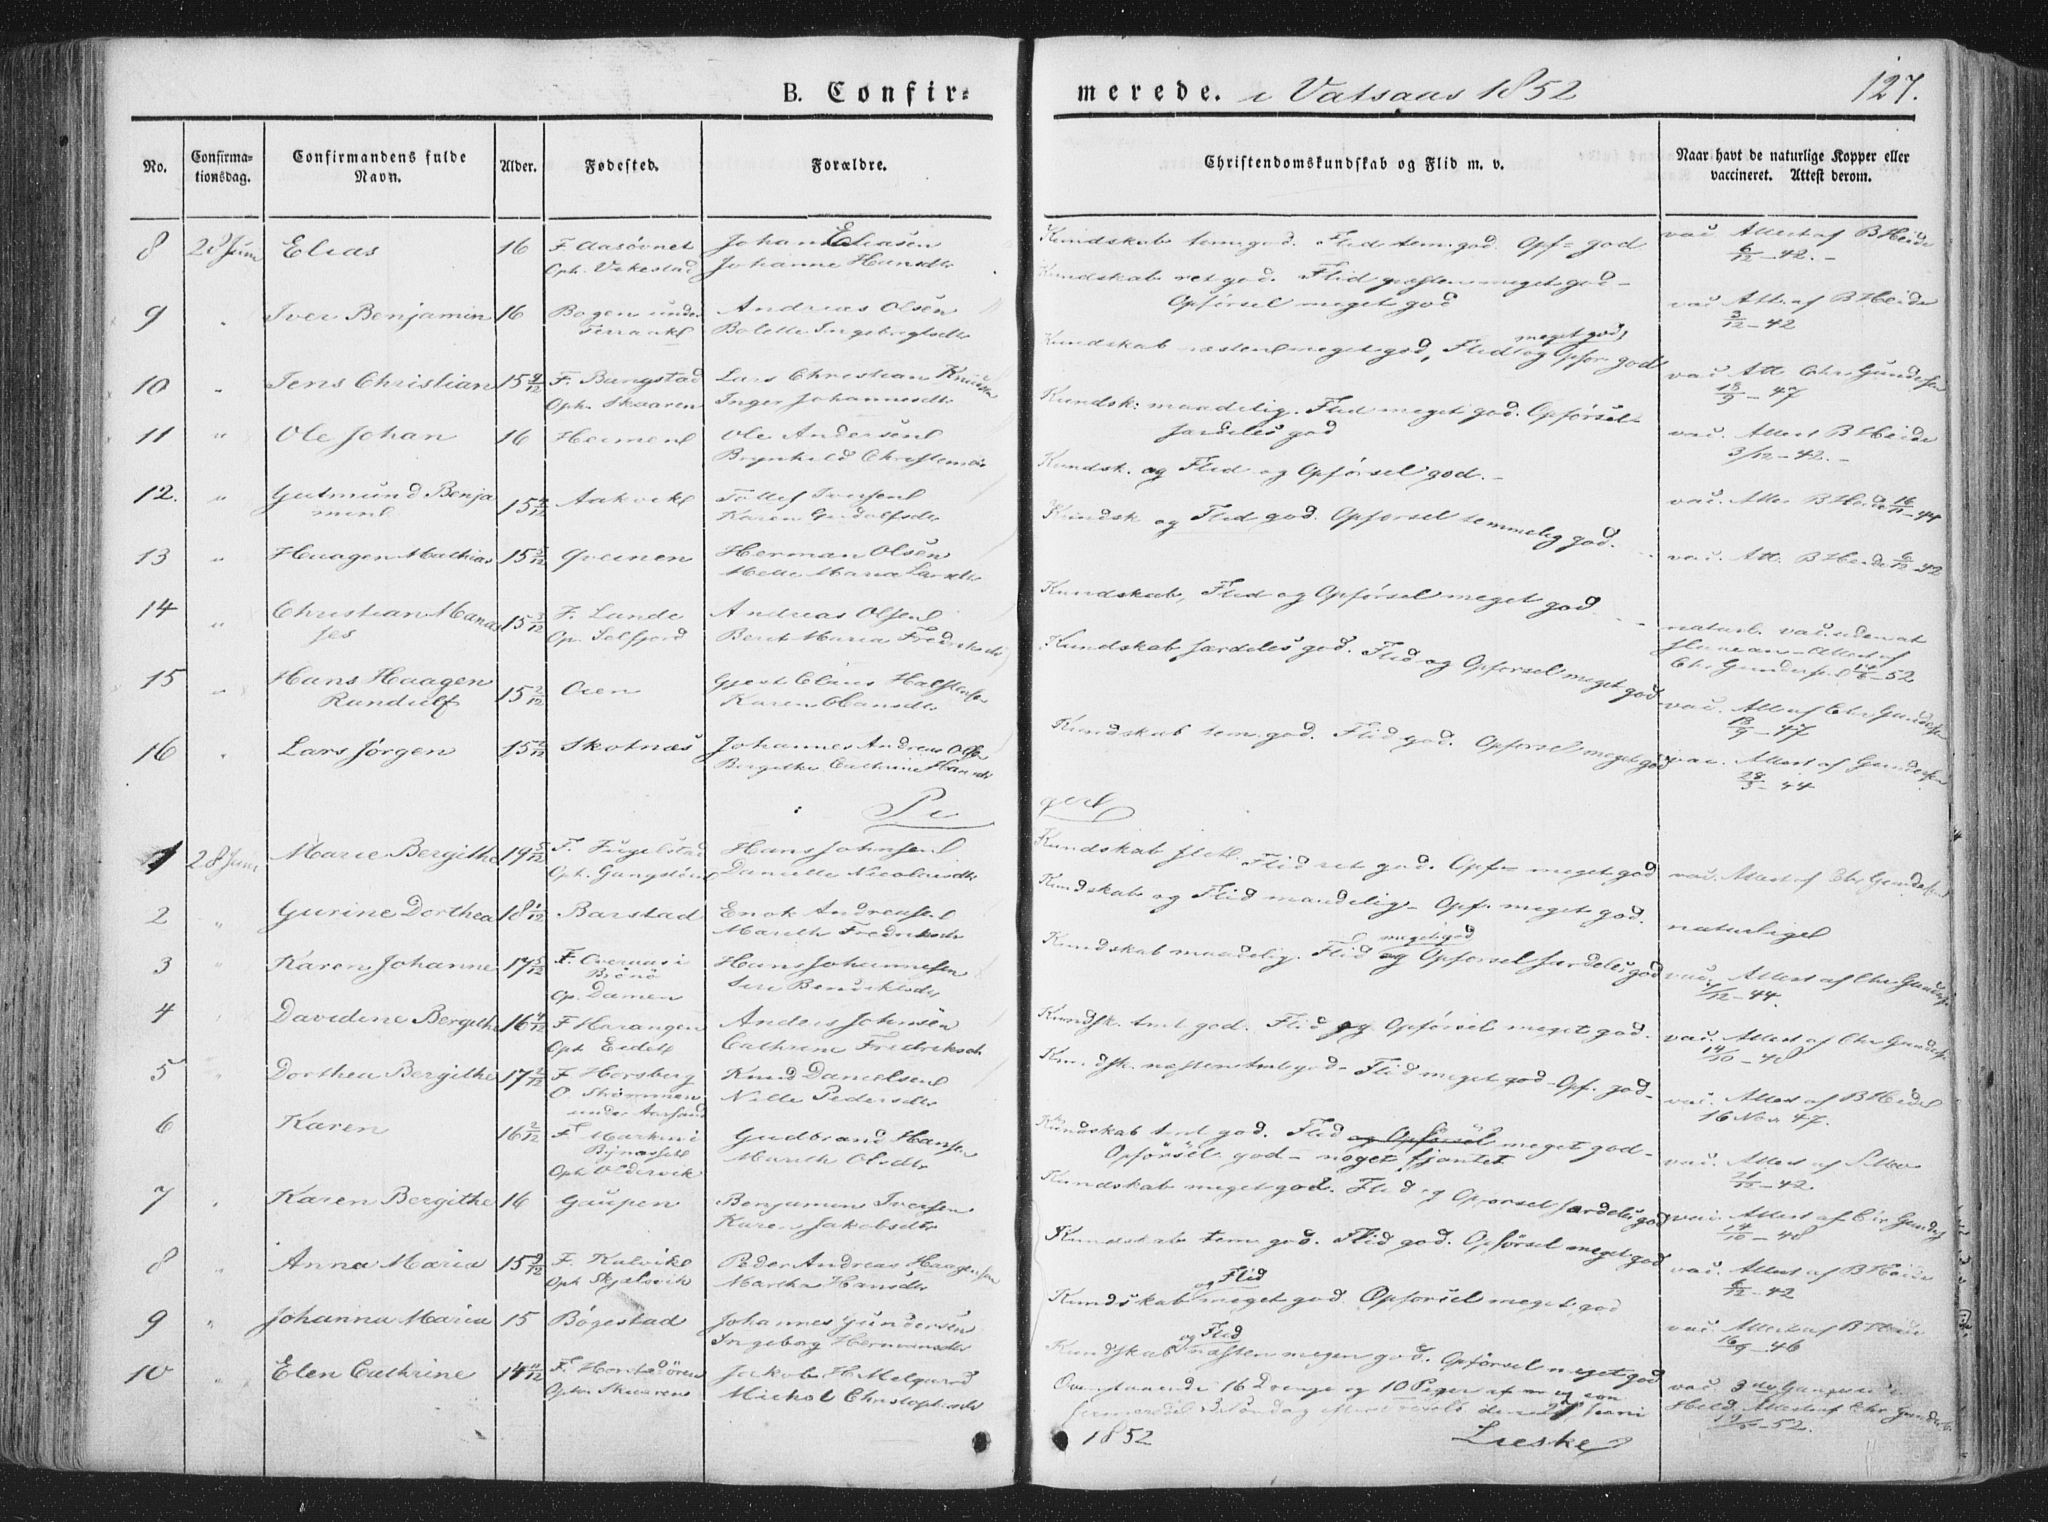 B. Confir- merede. i Vatsaas 1852 127.
No. Confirma- tionsdag. Confirmandens fulde Navn. Alder. Fødested. Forældre. Christendomskundskab og Flid m. v. Naar havt de naturlige Kopper eller vaccineret. Attest derom.
8 Elias 16 Johan Eliasen Kundskab tem. god. Flid tem. god. Opf= god vac. Attest af B Heide
Oph. Vikestad Johanne Hansdtr 6/12-42.-
9 Iver Benjamin 16 Bogen under Andreas Olsen Kundskab ret god. Flid næsten meget god- vac. Att. af B Heide
Terraak Bolette Ingebrigtsdtr Opførsel meget god 3/12-42
10 Jens Christian 15 F. Bangstad Lars Christian Knudsen Kundskab næsten meget god, Flid meget god, og Opfør. god vac. Att. Chr Gundersen
Oph. Skaaren Inger Johannesdtr 18/9-47
11 " Ole Johan 16 Heimen Ole Andersen Kundsk: maadelig. Flid meget god. Opførsel vac. Attest B Heide
Brynhild særdeles god 3/12-42.-
12. " Gutmund Benja 15 Aakvik Tollef Iversen Kundsk. og Flid og Opførsel god.- vac. Attest B Heide
min Karen
13 " Haagen Mathias 15 Qveinen Herman Olsen Kundsk og Flid god. Opførsel temmelig god. vac. Att. B Heide 6/12-42
Mette Maria Larsdtr
14 " Christian Manas 15 3/12 F. Lunde Andreas Olsen Kundskab, Flid og Opførsel meget god. naturl. vac. uden at
ses Op. Selfjord Beret Maria Fredriksdtr Attest af
Chr Gunders. -52
15 " Hans Haagen 15 2/12 Oien Gjest Elias Kundskab særdeles god. Flid og Opførsel meget god vac. Att. af Chr Gundersen
Randulf Karen Hansdtr 18/9-47
16 " Lars Jørgen 15 Skotnæs Johannes Andreas Olsen Kundskab tem. god. Flid god. Opførsel meget god vac. Attest af Gundersen
Bergitte Cathrine Hansdtr -44
Pi ger
1 28 Juni Marie Bergithe 19 5/12 F. Fugelstad Hans Johnsen Kundskab slet Flid ret god. Opf= meget god vac. Attest af Chr Gundersen
Danielle Nicolaisdtr
2 " Gurine Dorthea 18 Barstad Enok Andreasen Kundskab og Flid maadelig- Opf. meget god. naturlige
Mareth Fredriksdtr
3 " Karen Johanne 17 5/12 F. i Hans Johannesen Kundskab maadelig. Flid meget god og Opførsel særdeles god vac. Attest af Chr Gunders
Brönö Siri Bendiktsdtr -44.
Op. Damen
4 " Davidine Bergithe 16 4/12 F Harangen Anders Johnsen Kundsk. tml god. Flid og Opførsel meget god. vac. Attest af Chr Gunders
Oph. Eidet Cathrine Fredriksdtr 14/10-48
5 " Dorthea Bergithe 17 2/12 F Horsberg Knud Danielsen Kundsk. næsten tmlgod- Flid meget god- Opf. god- vac. Attest af B Heide
O. Strømmen Nille Pedersdtr 16 Nov 47.
under Aarsand
6 Karen 16 2/12 F Gudbrand Hansen Kundskab tml god. Flid og Opførsel meget god- vac. Attest af
Bynæsset Mareth Olsdtr Opførsel god- noget fjantet -42.
Oph. Oldervik
7 " Karen Bergithe 16 Gaupen Benjamin Iversen Kundskab meget god. Flid og Opførsel særdeles god vac. Attest af Chr Gunders
Karen Jakobsdtr 14/10-48
8 Anna Maria 15 9/12 F. Kalvik Peder Andreas Haagensen Kundskab tem god. Flid god. Opførsel meget god vac. Attest af B Heide
Oph Skjelsvik Martha Hansdtr 6/12-42
9 " Johanna Maria 15 Bøgestad Johannes Gundersen Kundskab og Flid meget god. Opførsel meget god vac. Attest af B Heide
Ingeborg Hermansdtr 16/9-46
10 Elen Cathrine 14 11/12 F. Jakob H Melgard Kundskab og Flid næsten megen god. Opførsel meget god vac.
Oph. Skaaren Michol Christophersdtr Ovenstaaende 16 Drenge og 10 Piger Attest af Chr Gunders.
Søndag -52.
1852 Lieske